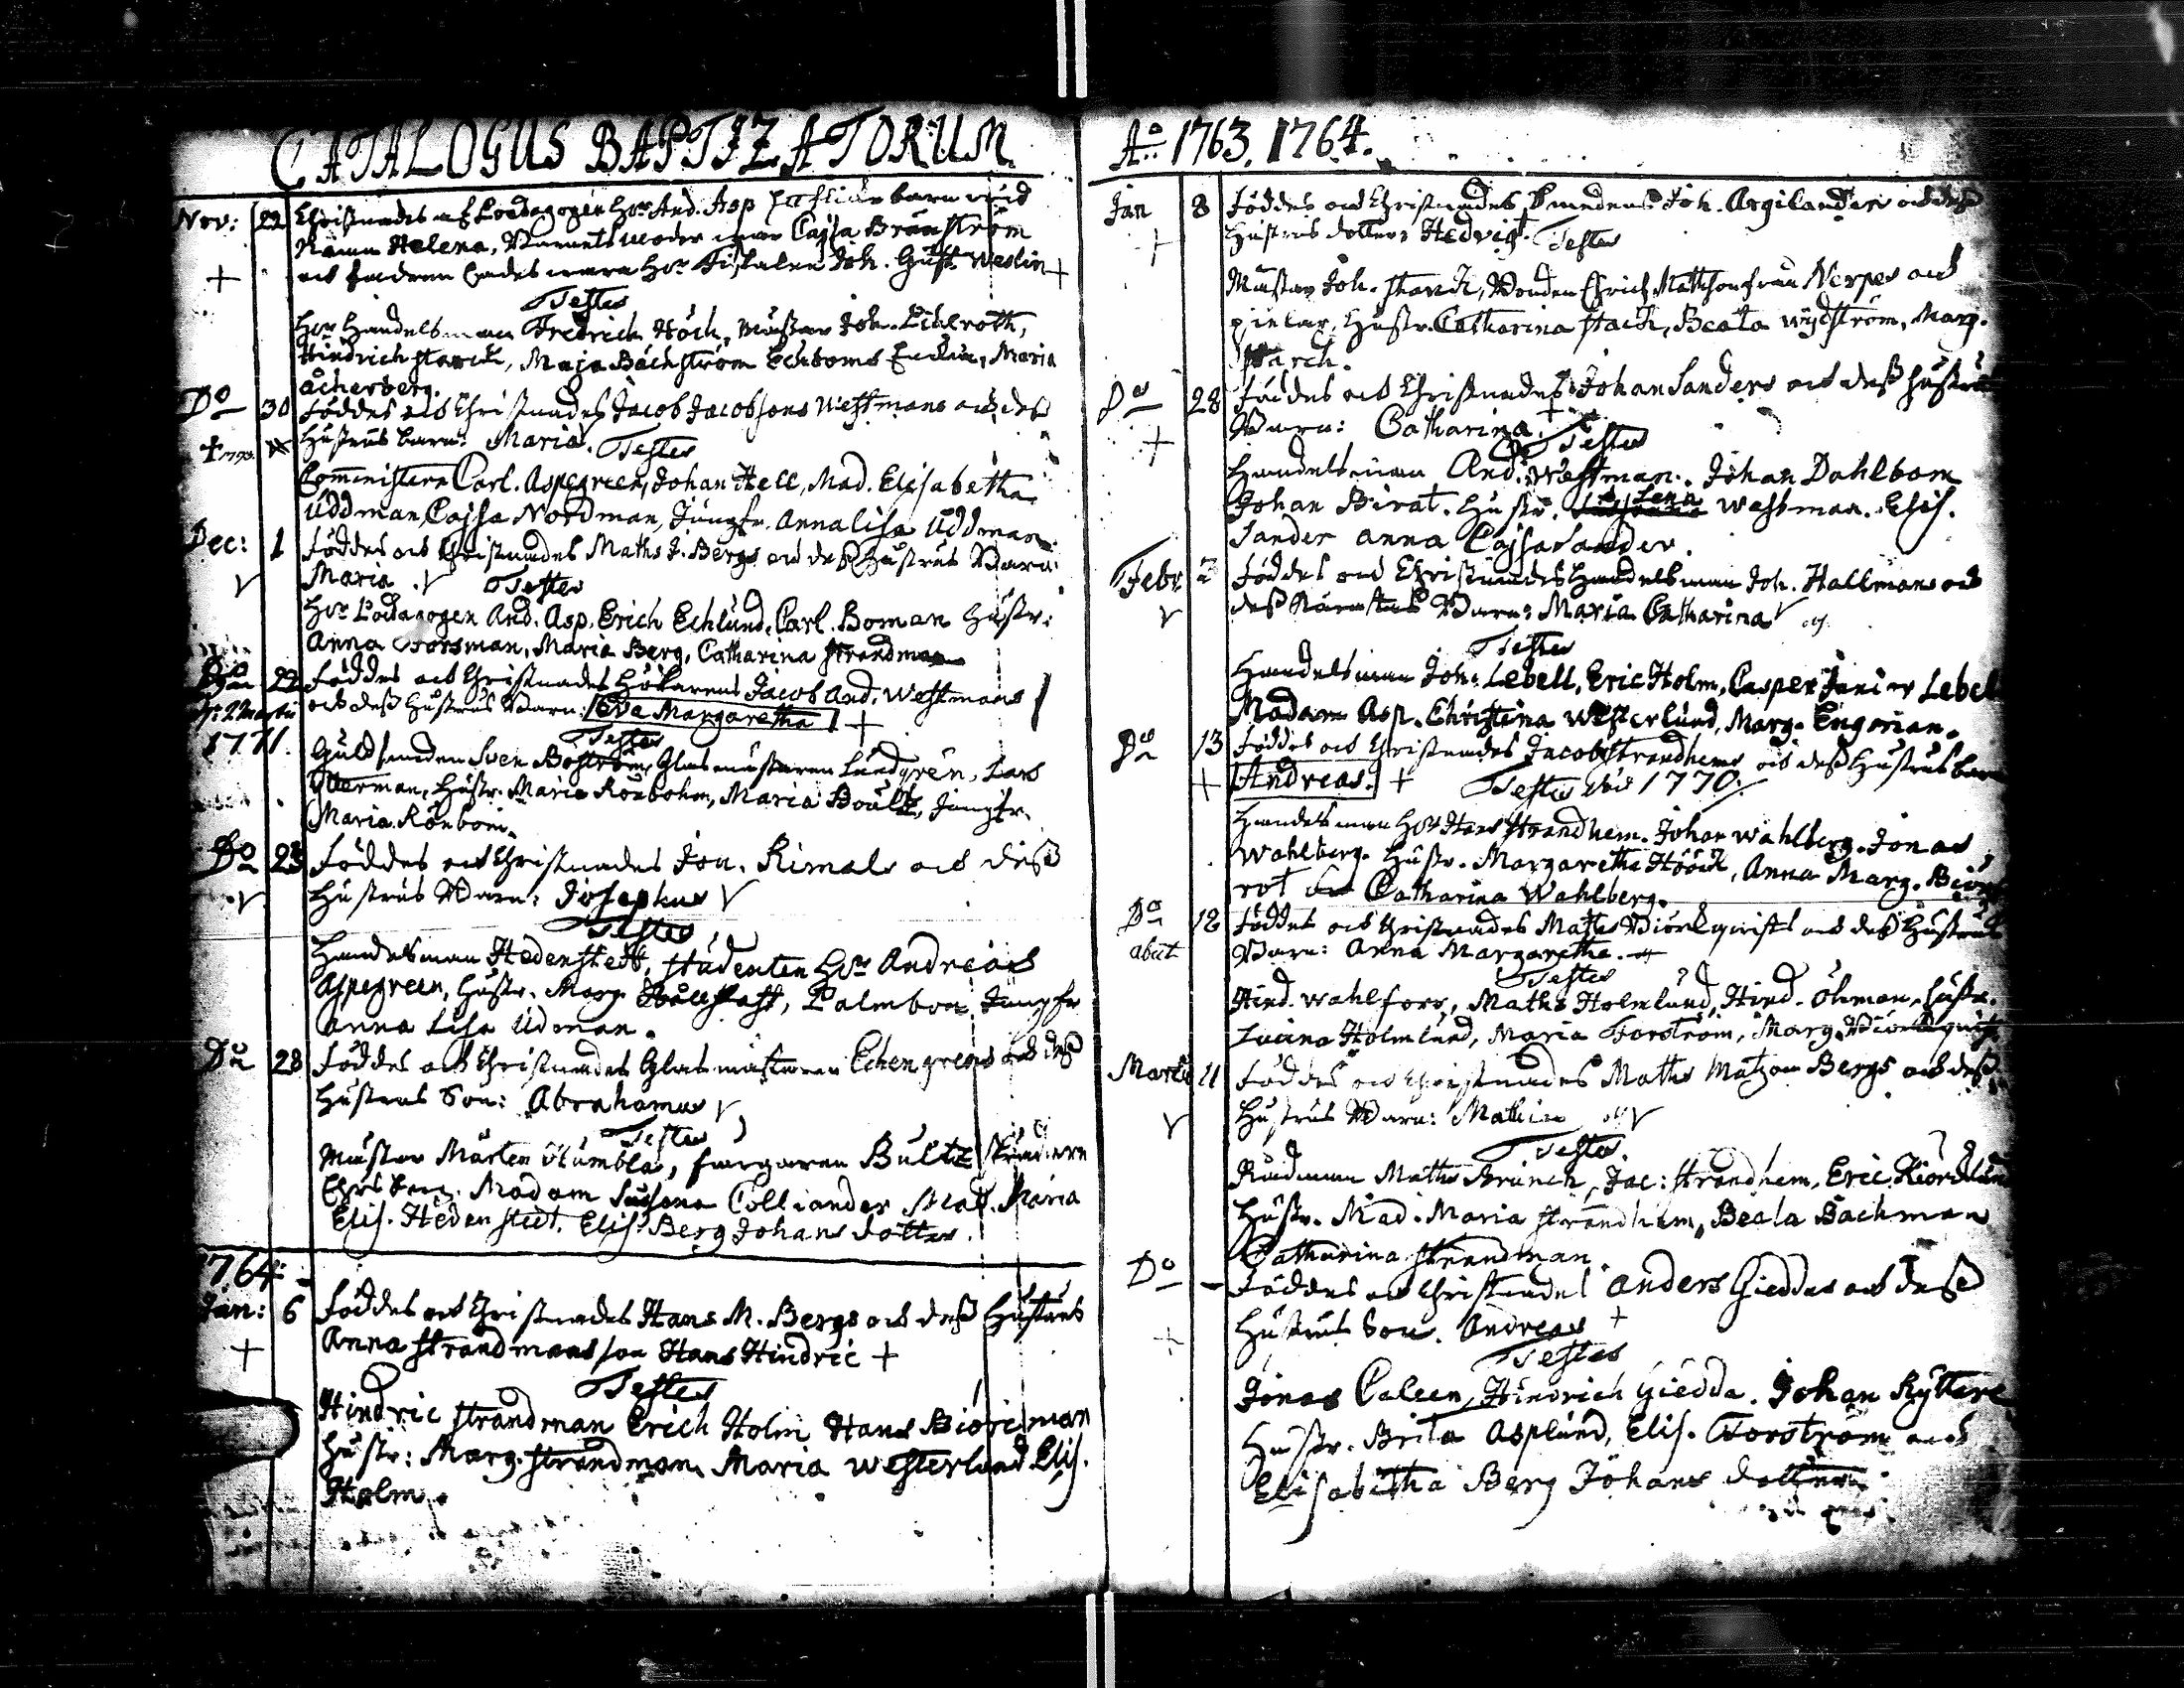 CATALOGUS BAPTIZATORUM
Nov: 22 Christnades af Pædagogen Hr And. Asp barn wid
Namn Helena, Barnets moder war Cajsa Brunström
och fadren war Hr Fiskalen Joh. Gust. Weslin +
+
Testes
Hr Handelsman Fredrich Höck, Mäster Joh. Libéroth,
Hindrich starck, Maja Bäckström Eckboms Enkia, Maria
åckerberg.
Do 30 föddes och Christnades Jacob Jacobsons Westmans och dess
Hustrus barn: Maria. Testes
Comministern Carl. Aspegreen, Johan Hell, Mad. Elisabetha
Uddman, Cajsa Nordman, Jungfr. Anna Lisa Uddman.
Dec: 1 föddes och Christnades Maths J. Bergs och dess Hustrus Barn
Maria. Testes
Hr Pædagogen And. Asp. Erich Echlund, Carl. Boman Hustr:
Anna Forsman, Maria Berg, Catharina strandman
Do 22 föddes och Christnades Hökarens Jacob And. Westmans
och dess Hustrus Barn: Eva Margaretha +
2 Martii
1771. Testes
Guldsmeden Sven Boström, Glasmästaren Lundgrén, Lars
Otterman, Hustr. Maria Rönbohm, Maria Boultz, Jungfr.
Maria Rönbom.
Do 23 föddes och Christnades Jon. Rimals och dess
Hustrus Barn: Josephus
Testes
Handelsman Hedenstedt, studenten Hr Andreas
Aspegreen, Hustr. Marg. Palmbom, Jungfr
Anna Lisa Udman.
Do 28 föddes och Christnades Glasmästaren Echengrens och dess
Hustrus Son: Abrahamus
Testes
Mäster Mårten Humbla, färgaren Bultz
Madam Susanna Colliander Maria
Elis. Hedenstedt. Elis. Berg Johans dotter.
1764:
Jan: 6 föddes och Christnades Hans M. Bergs och dess Hustrus
+ Anna strandmans son Hans Hindric +
Testes
Hindric strandman Erich Holm Hans Biörcman
Hustr: Marg. strandman Maria Westerlund Elis.
Holm.
Ao 1763. 1764.
Jan 8 föddes och Christnades Smedens Joh. Argilanders och dess
+ Hustrus dotter: Hedvig. Testes
Mästar Joh. starck, Bonden Ehrich Mattson från Nerpes och
Hustr. Catharina stack, Beata Wydström, Marg.
starck.
Do 28 föddes och Christnades Johan Sanders och dess Hustrus
+ Barn: Catharina. +
Testes
Handelsman And. Westman. Johan Dahlbom
Johan Birat. Hustr. Lena Westman. Elis.
Sander Anna Cajsa Sander.
Febr. 2 föddes och Christnades Handelsman Joh. Hallmans och
dess Barn: Maria Catharina
Testes
Handelsman Joh. Lebell, Eric Holm, Casper Junior Lebel
Madam Asp. Christina Westerlund, Marg. Engman.
Do 13 föddes och Christnades Jacob Strandhems och dess Hustrus barn
+ Andreas. + Testes 1770.
Handelsman Hr Hans strandhem. Johan Wahlberg. Jonas
Wahlberg. Hustr. Margaretha Höök, Anna Marg. Biörk
rot Catharina Wahlberg.
Do 18 föddes och Christnades Maths Biörkqwists och dess Hustrus
abut Barn: Anna Margaretha.
Testes
Hind. Wahlfors, Maths Holmlund, Hind. Öhman, Hustr.
Lucina Holmlund, Maria Forström, Marg. Biörkquist
Martii 11 föddes och Christnades Maths Matzon Bergs och dess
Hustrus Barn: Mathias
Testes
Rådman Maths Brunck, Jac: strandhem, Eric Kiörklund
Hustr. Mad. Maria strandhem, Beata Bäckman
Catharina strandman.
Do – föddes och Christnades Anders Gieddas och dess
+ Hustrus Son. Andreas +
Testes
Jonas Caleen, Hindrich Giedda. Johan Ryttare
Hustr. Brita Asplund, Elis. Forström och
Elisabetha Berg Johans dotter